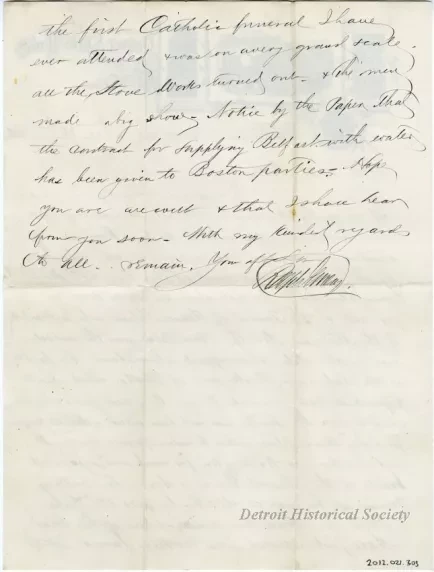 the first Catholic funeral I have
ever attended & was on a very grand scale.
all the Stove Works turned out - & the men
made a big show - Notice by the Papers That
the contract for supplying Belfast with water
has been given to Boston parties - Hope
you are well & that I shall hear
from you soon - With my kindest regards
to all . remain. Your
Detroit Historical Society
2012.021.305